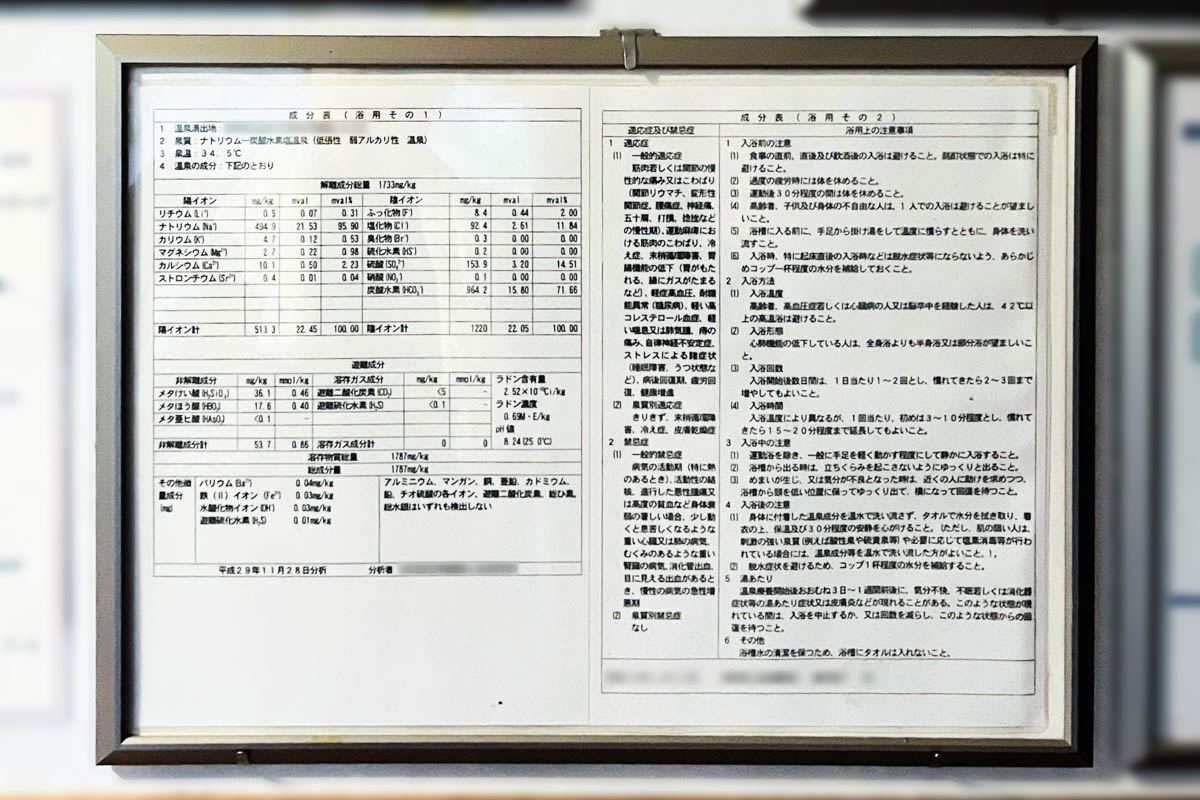 成分表(浴用その1)
1 温泉湧出地:
2 泉質:ナトリウム一炭酸水素塩温泉(低張性 弱アルカリ性 温泉)
3 泉温:34.5℃
4 温泉の成分:下記のとおり
溶解成分総量 1733mg/kg
陽イオン mg/kg mval mval% 陰イオン mg/kg mval mval%
リチウム(Li⁺) 0.5 0.07 0.31 ふっ化物(F⁻) 8.4 0.44 2.00
ナトリウム(Na⁺) 494.9 21.53 95.90 塩化物(Cl⁻) 92.4 2.61 11.84
カリウム(K⁺) 4.7 0.12 0.53 臭化物(Br⁻) 0.3 0.00 0.00
マグネシウム(Mg²⁺) 2.7 0.22 0.98 硫化水素(HS⁻) 0.2 0.00 0.00
カルシウム(Ca²⁺) 10.1 0.50 2.23 硫酸(SO₄²⁻) 153.9 3.20 14.51
ストロンチウム(Sr²⁺) 0.4 0.01 0.04 硝酸(NO₃⁻) 0.1 0.00 0.00
炭酸水素(HCO₃⁻) 964.2 15.80 71.66
陽イオン計 513.3 22.45 100.00 陰イオン計 1220 22.05 100.00
遊離成分
非解離成分 mg/kg mmol/kg 溶存ガス成分 mg/kg mmol/kg ラドン含有量
メタけい酸(H₂SiO₃) 36.1 0.46 遊離二酸化炭素(CO₂) <5 - 2.52×10⁻¹⁰Ci/kg
メタほう酸(HBO₂) 17.6 0.40 遊離硫化水素(H₂S) <0.1 - ラドン濃度
メタ亜ヒ酸(HAsO₂) <0.1 - 0.69M・E/kg
pH値
非解離成分計 53.7 0.86 溶存ガス成分計 0 0 8.24(25.0℃)
溶存物質総量 1787mg/kg
総成分量 1787mg/kg
その他微量成分(mg)
バリウム(Ba²⁺) 0.04mg/kg
鉄(II)イオン(Fe²⁺) 0.03mg/kg
水酸化物イオン(OH⁻) 0.03mg/kg
遊離硫化水素(H₂S) 0.01mg/kg
アルミニウム、マンガン、銅、亜鉛、カドミウム、
鉛、チオ硫酸の各イオン、遊離二酸化炭素、総ひ素、
総水銀はいずれも検出しない
平成29年11月28日分析 分析者
成分表(浴用その2)
適応症及び禁忌症
1 適応症
(1) 一般的適応症
筋肉若しくは関節の慢
性的な痛み又はこわばり
(関節リウマチ、変形性
関節症、腰痛症、神経痛、
五十肩、打撲、捻挫など
の慢性期)、運動麻痺にお
ける筋肉のこわばり、冷
え症、末梢循環障害、胃
腸機能の低下(胃がもた
れる、腸にガスがたまる
など)、軽症高血圧、耐糖
能異常(糖尿病)、軽い高
コレステロール血症、軽
い喘息又は肺気腫、痔の
痛み、自律神経不安定症、
ストレスによる諸症状
(睡眠障害、うつ状態な
ど)、病後回復期、疲労回
復、健康増進
(2) 泉質別適応症
きりきず、末梢循環障
害、冷え症、皮膚乾燥症
2 禁忌症
(1) 一般的禁忌症
病気の活動期(特に熱
のあるとき)、活動性の結
核、進行した悪性腫瘍又
は高度の貧血など身体衰
弱の著しい場合、少し動
くと息苦しくなるような
重い心臓又は肺の病気、
むくみのあるような重い
腎臓の病気、消化管出血、
目に見える出血があると
き、慢性の病気の急性増
悪期
(2) 泉質別禁忌症
なし
浴用上の注意事項
1 入浴前の注意
(1) 食事の直前、直後及び飲酒後の入浴は避けること。酩酊状態での入浴は特に
避けること。
(2) 過度の疲労時には体を休めること。
(3) 運動後30分程度の間は体を休めること。
(4) 高齢者、子供及び身体の不自由な人は、1人での入浴は避けることが望まし
いこと。
(5) 浴槽に入る前に、手足から掛け湯をして温度に慣らすとともに、身体を洗い
流すこと。
(6) 入浴時、特に起床直後の入浴時などは脱水症状等にならないよう、あらかじ
めコップ一杯程度の水分を補給しておくこと。
2 入浴方法
(1) 入浴温度
高齢者、高血圧症若しくは心臓病の人又は脳卒中を経験した人は、42℃以
上の高温浴は避けること。
(2) 入浴形態
心肺機能の低下している人は、全身浴よりも半身浴又は部分浴が望ましいこ
と。
(3) 入浴回数
入浴開始後数日間は、1日当たり1~2回とし、慣れてきたら2~3回まで
増やしてもよいこと。
(4) 入浴時間
入浴温度により異なるが、1回当たり、初めは3~10分程度とし、慣れて
きたら15~20分程度まで延長してもよいこと。
3 入浴中の注意
(1) 運動浴を除き、一般に手足を軽く動かす程度にして静かに入浴すること。
(2) 浴槽から出る時は、立ちくらみを起こさないようにゆっくりと出ること。
(3) めまいが生じ、又は気分が不良となった時は、近くの人に助けを求めつつ、
浴槽から頭を低い位置に保ってゆっくり出て、横になって回復を待つこと。
4 入浴後の注意
(1) 身体に付着した温泉成分を温水で洗い流さず、タオルで水分を拭き取り、着
衣の上、保温及び30分程度の安静を心がけること。(ただし、肌の弱い人は、
刺激の強い泉質(例えば酸性泉や硫黄泉等)や必要に応じて塩素消毒等が行わ
れている場合には、温泉成分等を温水で洗い流した方がよいこと。)。
(2) 脱水症状を避けるため、コップ1杯程度の水分を補給すること。
5 湯あたり
温泉療養開始後おおむね3日~1週間前後に、気分不快、不眠若しくは消化器
症状等の湯あたり症状又は皮膚炎などが現れることがある。このような状態が現
れている間は、入浴を中止するか、又は回数を減らし、このような状態からの回
復を待つこと。
6 その他
浴槽水の清潔を保つため、浴槽にタオルは入れないこと。